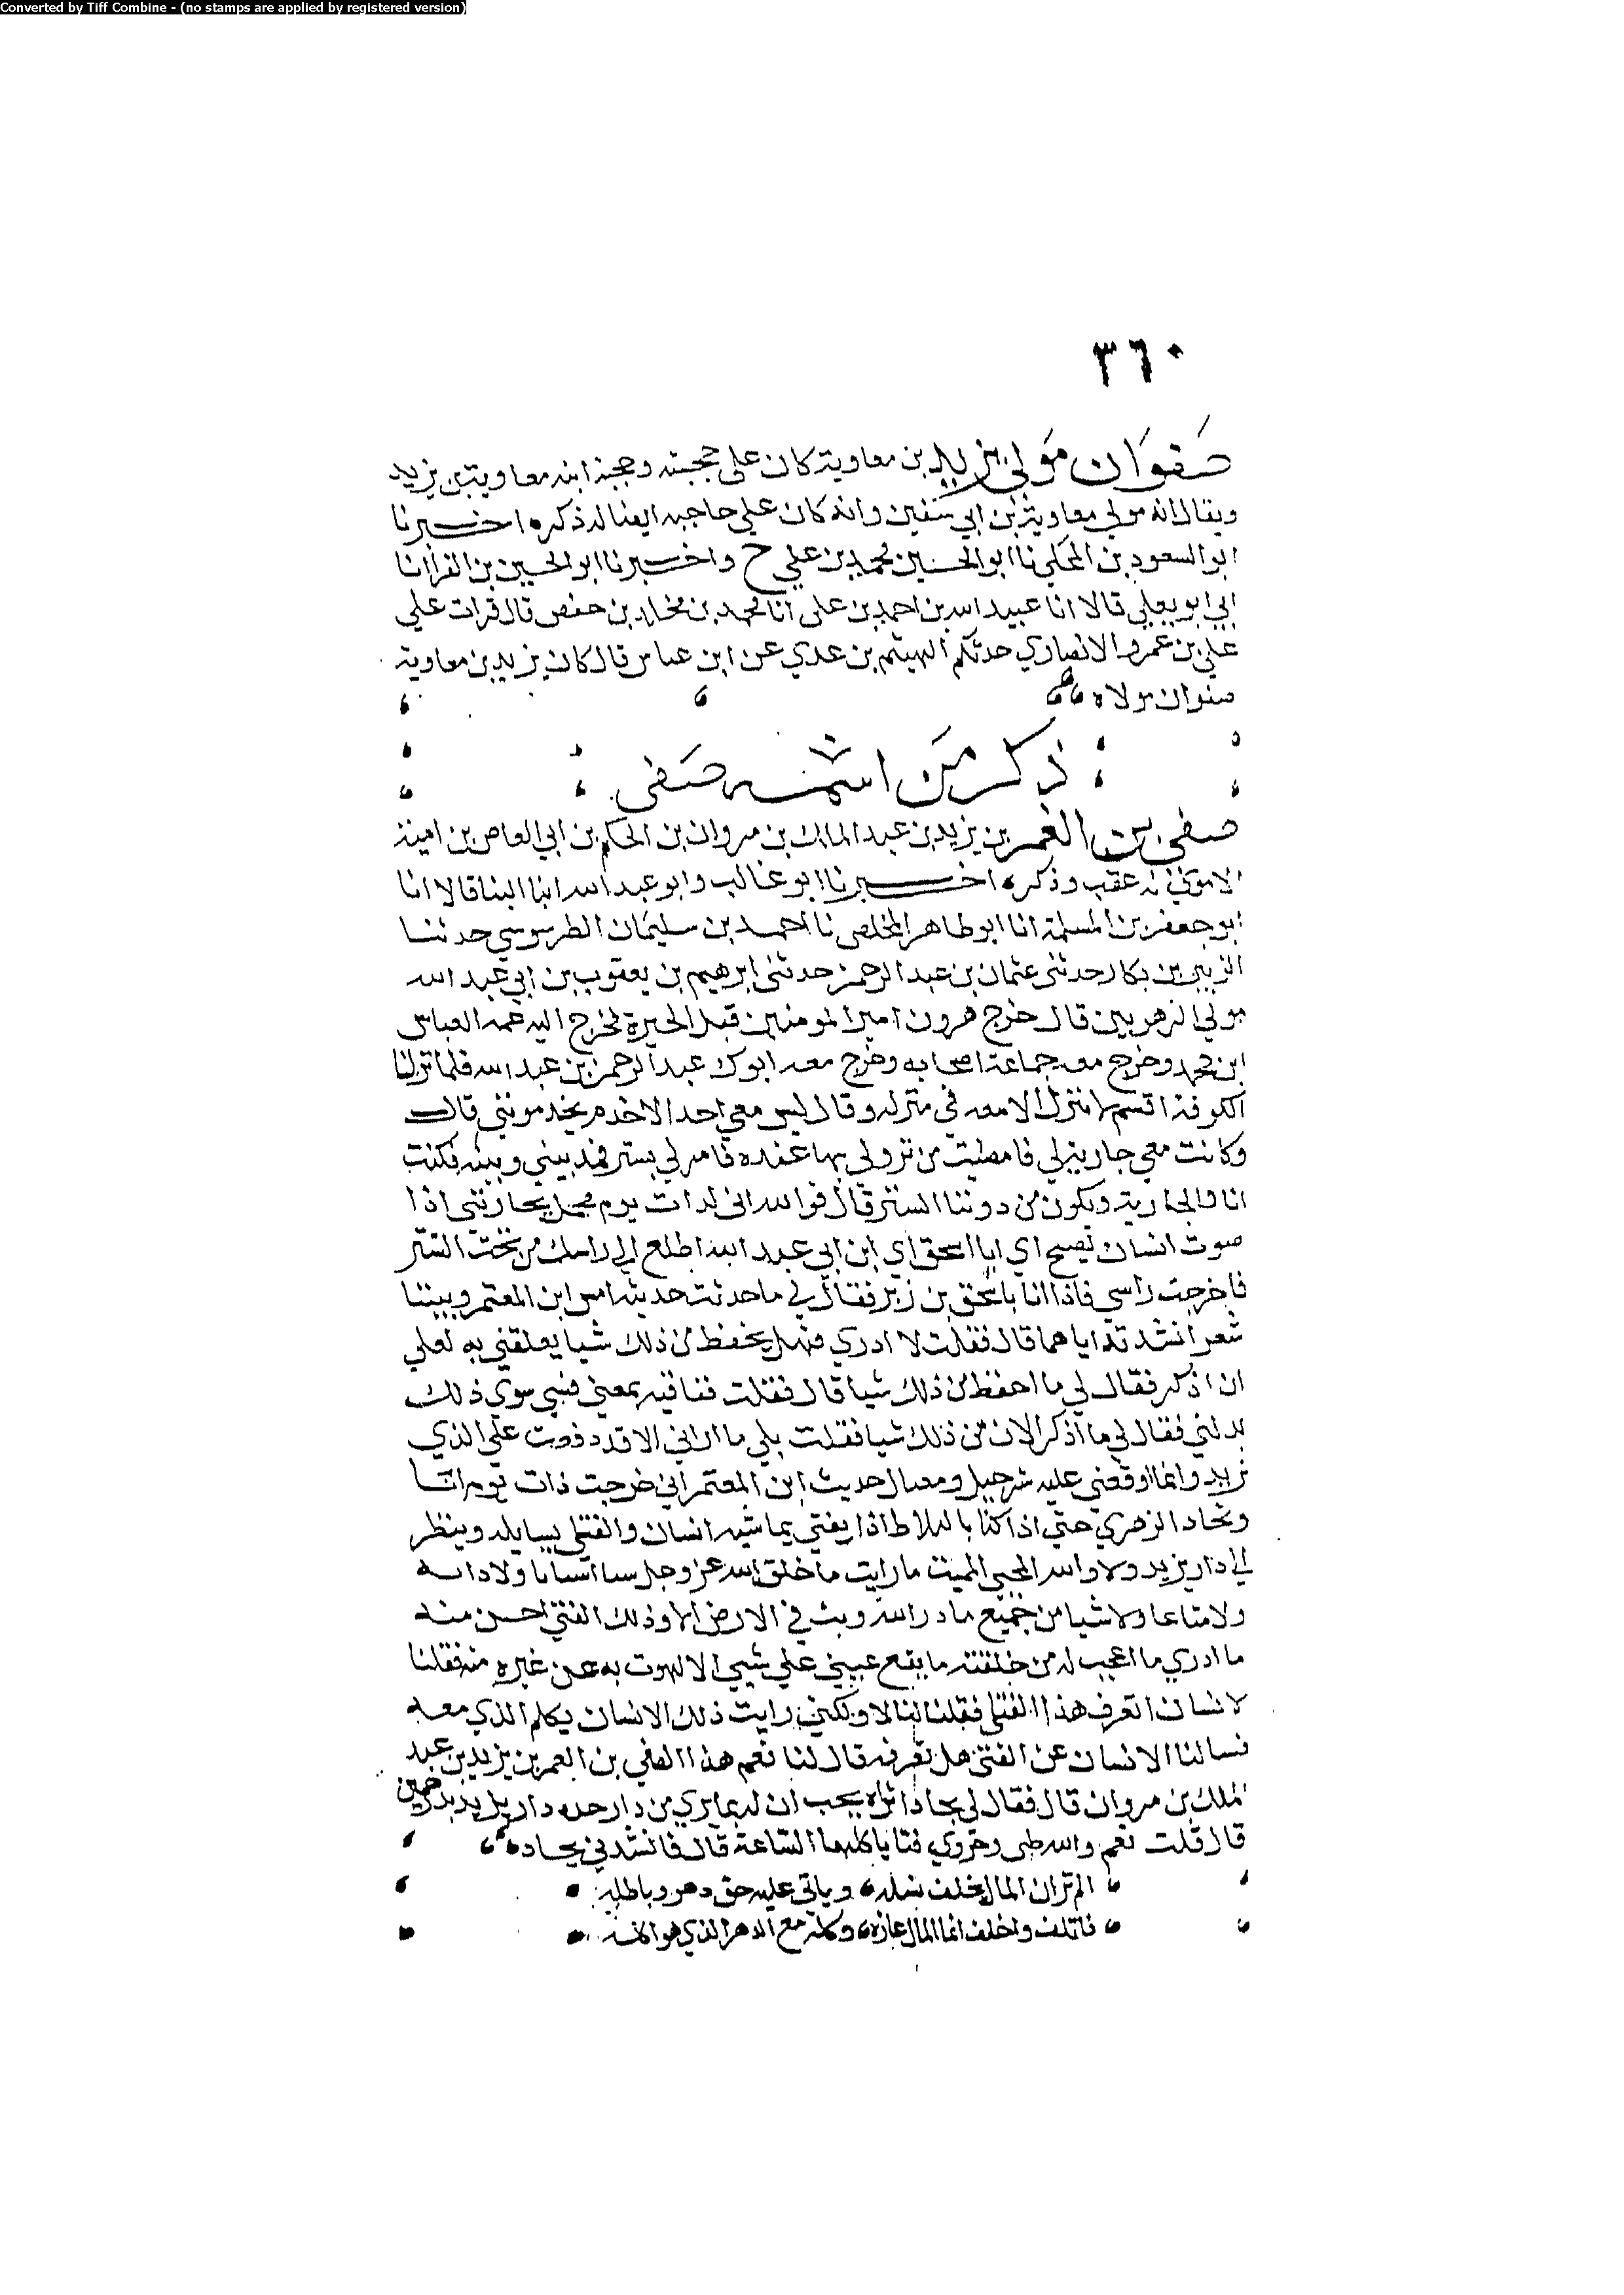 Converted by Tiff Combine - (no stamps are applied by registered version)
٣٦٠
صفوان مولى يزيد بن معاوية كان على حجبته وحجبة ابنه معاوية بن يزيد
ويقال انه مولى معاوية بن ابي سفين وانه كان على حاجبه ايضا له ذكر اخبرنا
ابو السعود بن المجلي نا ابو الحسين محمد بن علي ح واخبرنا ابو الحسين بن الفرا انا
ابي ابو يعلى قالا انا عبيد الله بن احمد بن علي انا محمد بن مخلد بن حفص قال قرات على
علي بن عمرو الانصاري حدثكم الهيثم بن عدي عن ابن عباس قال كان يزيد بن معاوية
صفوان مولاه
ذكر من اسمه صفي
صفي بن الغمر بن يزيد بن عبد الملك بن مروان بن الحكم بن ابي العاص بن امية
الاموي له عقب وذكر اخبرنا ابو غالب وابو عبد الله ابنا البنا قالا انا
ابو جعفر بن المسلمة انا ابو طاهر المخلص نا احمد بن سليمان الطوسي حدثنا
الزبير بن بكار حدثني عثمان بن عبد الرحمن حدثني ابرهيم بن يعقوب بن ابي عبد الله
مولى الزهريين قال خرج هرون امير المومنين قبل الحيرة فخرج اليه عمه العباس
ابن محمد وخرج معه جماعة اصحابه وخرج معه ابوك عبد الرحمن بن عبد الله فلما نزلنا
الكوفة اقسم لا ننزل الا معه في منزله وقال ليس معي احد الا خدم يخدمونني قال
وكانت معي جارية لي فامضيت من نزولي بها عنده فامر لي بستر فمد بيني وبينه فكنت
انا والجارية ويكون من دوننا الستر قال فوالله اني لذات يوم مع جاريتي اذا
صوت انسان يصيح اي ابا اسحق اي ابن ابي عبد الله اطلع الي راسك من تحت الستر
فاخرجت راسي فاذا انا باسحق بن زبر فقال لي ما حدثت حديثه امس ابن المعتمر وبيتنا
شعر انشدته اياهما قال فقلت لا ادري فهل تحفظ من ذلك شيا يعلقني به لعلي
ان اذكر فقال لي ما احفظ من ذلك شيا قال فقلت فقافيه بمعنى فنبي سوى ذلك
بدلني فقال لي ما اذكر الان من ذلك شيا فقلت بلى ما اراني الا قد وقعت على الذي
تريد وانما اوقعني عليه شرحبيل ومصال حديث ابن المعتمر اني خرجت ذات يوم انا
وبجاد الزهري حتى اذا كنا بالبلاط اذا بفتى يماشيه انسان والفتى يسايله وينظر
الى دار يزيد ولا والله المحيي المميت ما رايت ما خلق الله عز وجل انسانا ولا دابة
ولا متاعا ولا شيا من جميع ما درا الله وبث في الارض الا وذلك الفتى احسن منه
ما ادري ما اعجب له من خلقته ما يقع عيني على شيي الا لهوت به عن غيره منه فقلنا
لانسان اتعرف هذا الفتى فقلنا لنا لا ولكني رايت ذلك الانسان يكلم الذي معه
فسالنا الانسان عن الفتى هل تعرفه قال لنا نعم هذا الصفي بن الغمر بن يزيد بن عبد
الملك بن مروان قال فقال لي بجاد اتراه يحب ان له بما يرى من دار جده دار يزيد بدرهمين
قال قلت نعم والله طبي وخروي فتا ياكلهما الساعة قال فانشدني بجاد
الم تر ان المال يخلف نسله وياتي عليه حق دهر وباطله
فاتلف واخلف انما المال عارة وكله مع الدهر الذي هو اكله